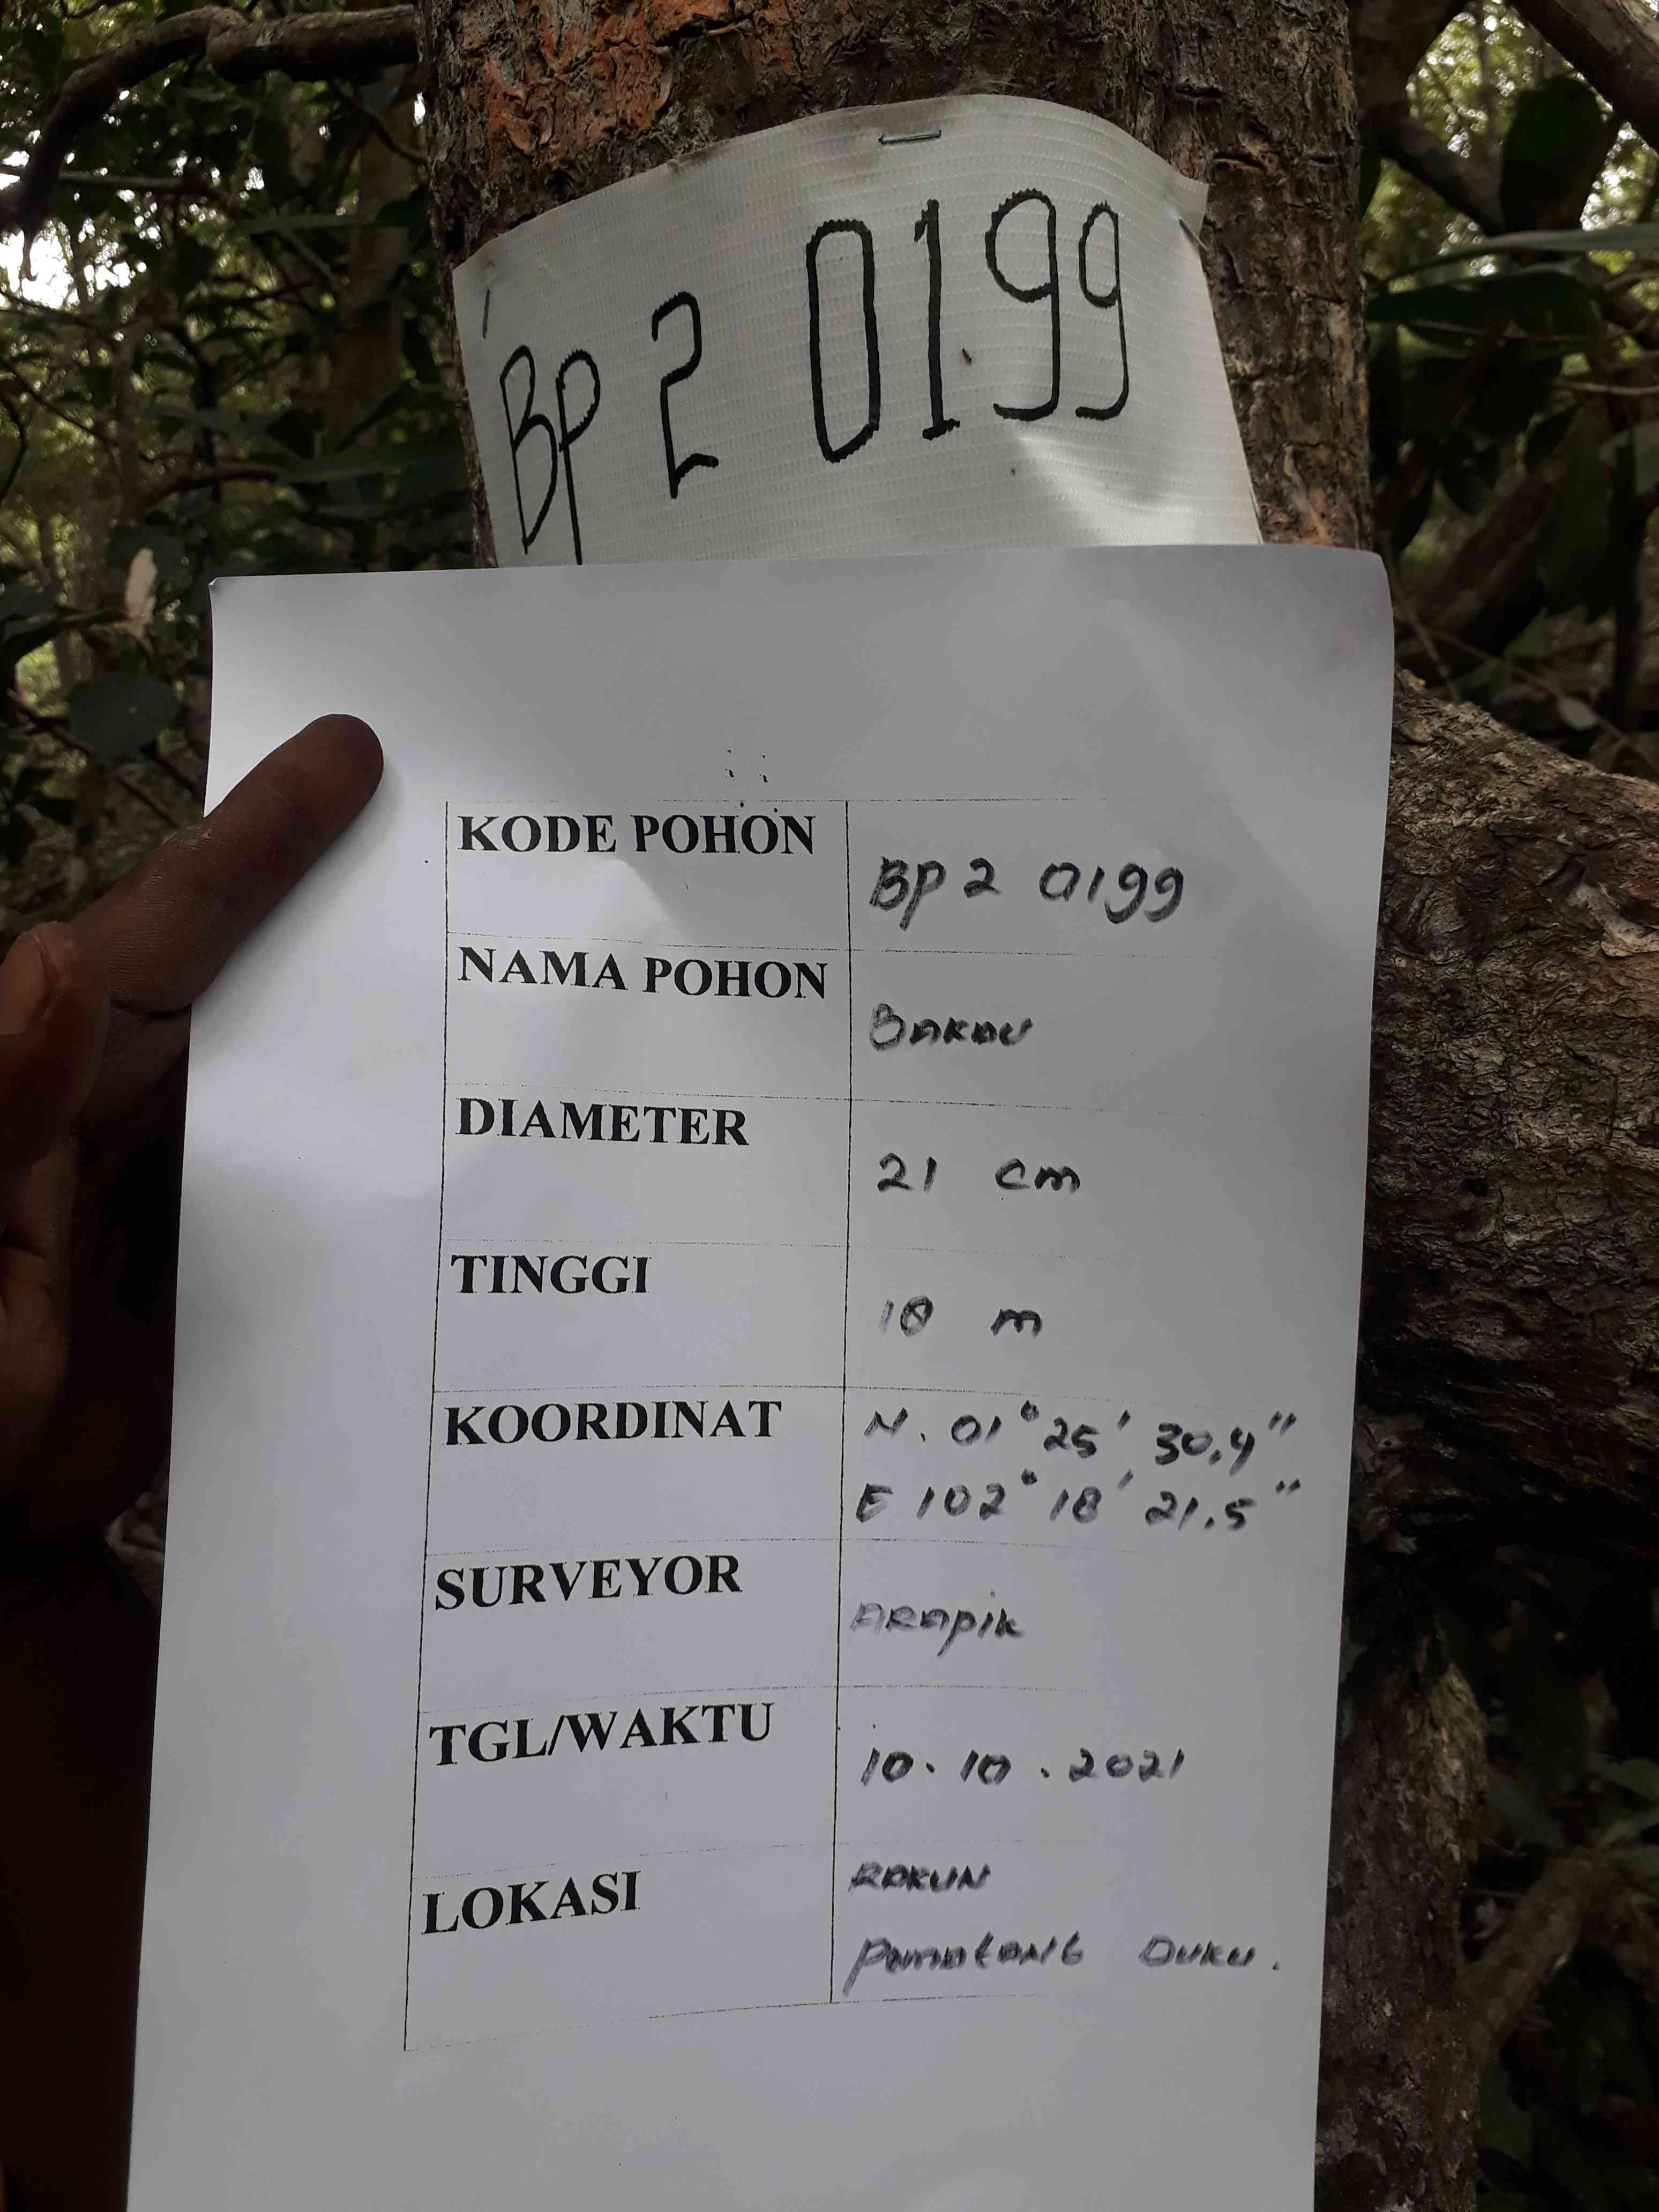 BP 2 0199
KODE POHON
BP 2 0199
NAMA POHON
BAKAU
DIAMETER
21 cm
TINGGI
m
KOORDINAT
N. 01° 25' 30.4"
E 102° 18' 21.5"
SURVEYOR
ARAPIK
TGL/WAKTU
10. 10. 2021
LOKASI
PAMATANG DUKU.